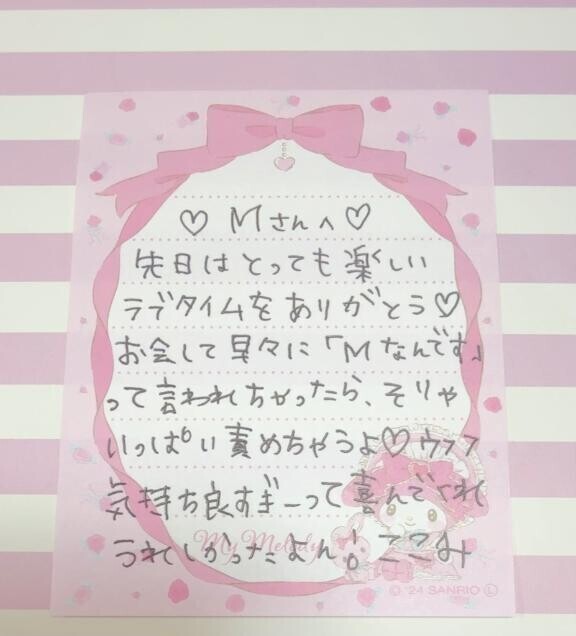 ♡ Mさんへ♡
先日はとっても楽しい
ラブタイムをありがとう♡
お会して早々に「Mなんです」
って言われちゃったら、そりゃ
いっぱい責めちゃうよ♡ウフフ
気持ち良すぎーって喜んでくれて
うれしかったよん! こずみ
My Melody
© '24 SANRIO Ⓛ